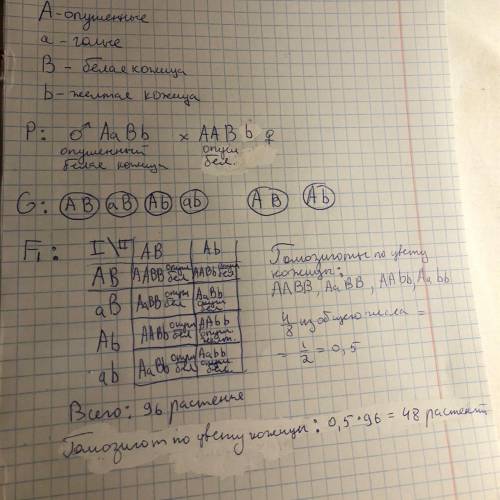 А - опушенные
а - голые
В - белая кожица
b - желтая кожица
P: ♂ AaBb × AABb ♀
опушенный опуш
белая кожица бел.
G: AB aB Ab ab AB Ab
F₁: I\II AB Ab
AB AABB опуш бел AABb опуш бел
aB AaBB опуш бел AaBb опуш бел
Ab AABb опуш бел AAbb опуш желт.
ab AaBb опуш бел Aabb опуш бел.
Гомозиготы по цвету
кожицы:
AABB, AaBB, AAbb, Aabb
4/8 из общего числа =
= 1/2 = 0,5
Всего: 96 растенье
Гомозигот по цвету кожицы: 0,5 · 96 = 48 растений